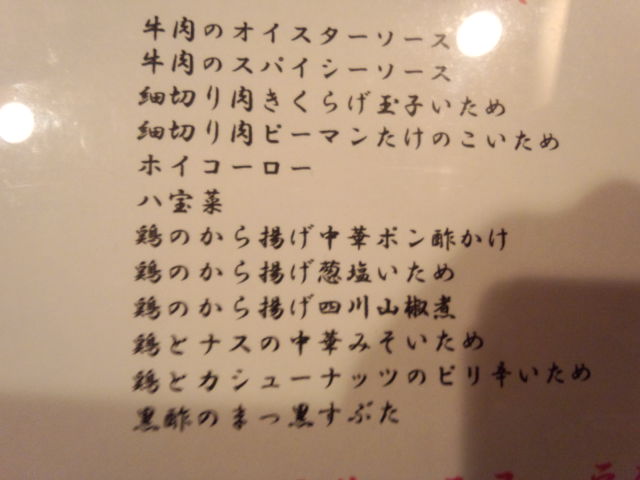 牛肉のオイスターソース
牛肉のスパイシーソース
細切り肉きくらげ玉子いため
細切り肉ピーマンたけのこいため
ホイコーロー
八宝菜
鶏のから揚げ中華ポン酢かけ
鶏のから揚げ葱塩いため
鶏のから揚げ四川山椒煮
鶏とナスの中華みそいため
鶏とカシューナッツのピリ辛いため
黒酢のまっ黒すぶた